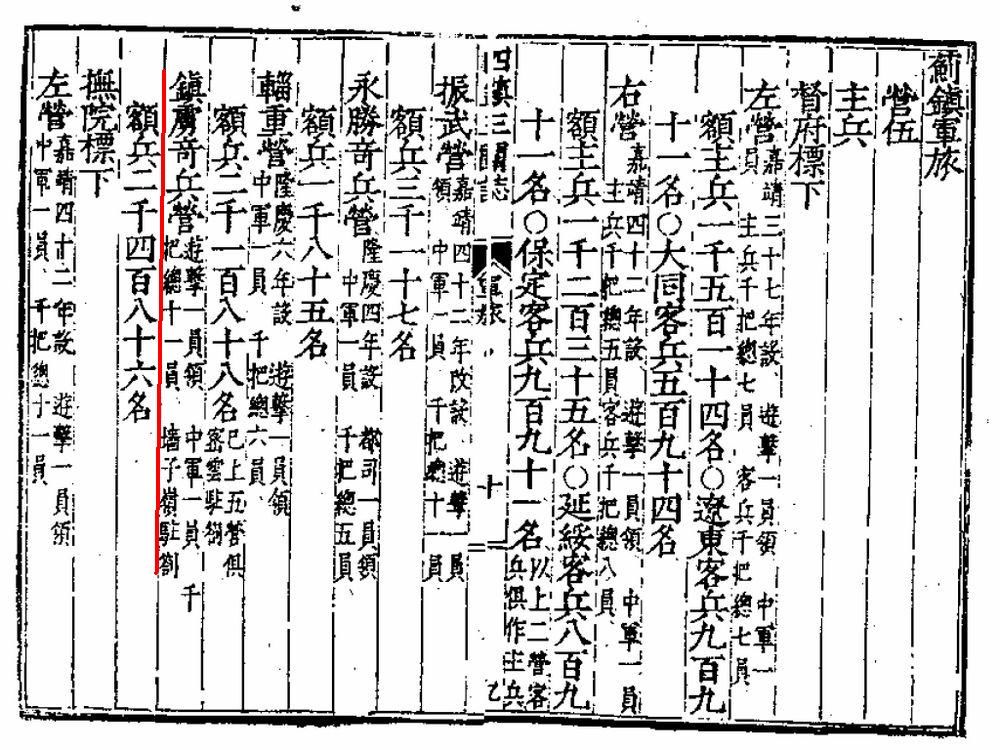 薊鎮軍旅
營伍
主兵
督府標下
左營嘉靖三十七年設 遊擊一員領 中軍一員 主兵千把總七員 客兵千把總七員
額主兵一千五百一十四名○遼東客兵九百九
十一名○大同客兵五百九十四名
右營嘉靖四十二年設 遊擊一員領 中軍一員 主兵千把總五員 客兵千把總八員
額主兵一千二百三十五名○延綏客兵八百九
十一名○保定客兵九百九十一名以上二營客兵俱作主兵
四鎮三關誌 軍旅 十 乙
振武營嘉靖四十二年改設 遊擊一員領 中軍一員 千把總十一員
額兵三千一十七名
永勝奇兵營隆慶四年設 都司一員領 中軍一員 千把總五員
額兵一千八十五名
輜重營隆慶六年設 遊擊一員領 中軍一員 千把總六員
額兵二千一百八十八名已上五營俱密雲駐劄
鎮虜奇兵營遊擊一員領 中軍一員 千把總十一員 墻子嶺駐劄
額兵二千四百八十六名
撫院標下
左營嘉靖四十二年設 遊擊一員領 中軍一員 千把總十一員